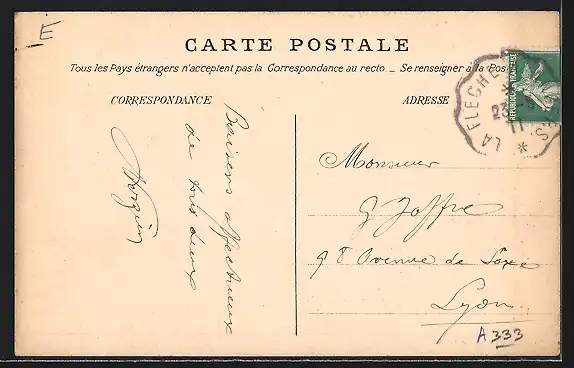 E
CARTE POSTALE
Tous les Pays étrangers n'acceptent pas la Correspondance au recto. _ Se renseigner à la Pos
CORRESPONDANCE
ADRESSE
LA FLECHE
23
11
REPUBLIQUE FRANÇAISE
Baisers affectueux
de tous deux
Monsieur
G Joffre
98 Avenue de Saxe
Lyon
A 333